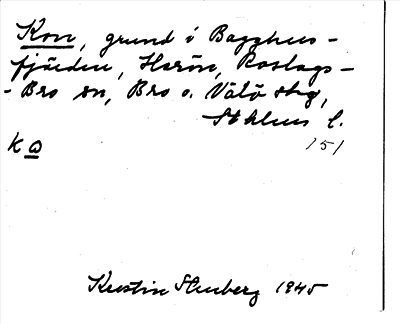 Kon, grund i Bagghus-
fjärden, Harön, Roslags-
-Bro sn, Bro o. Vätö skg,
Sthlms l.
k a 151
Kerstin Stenberg 1945